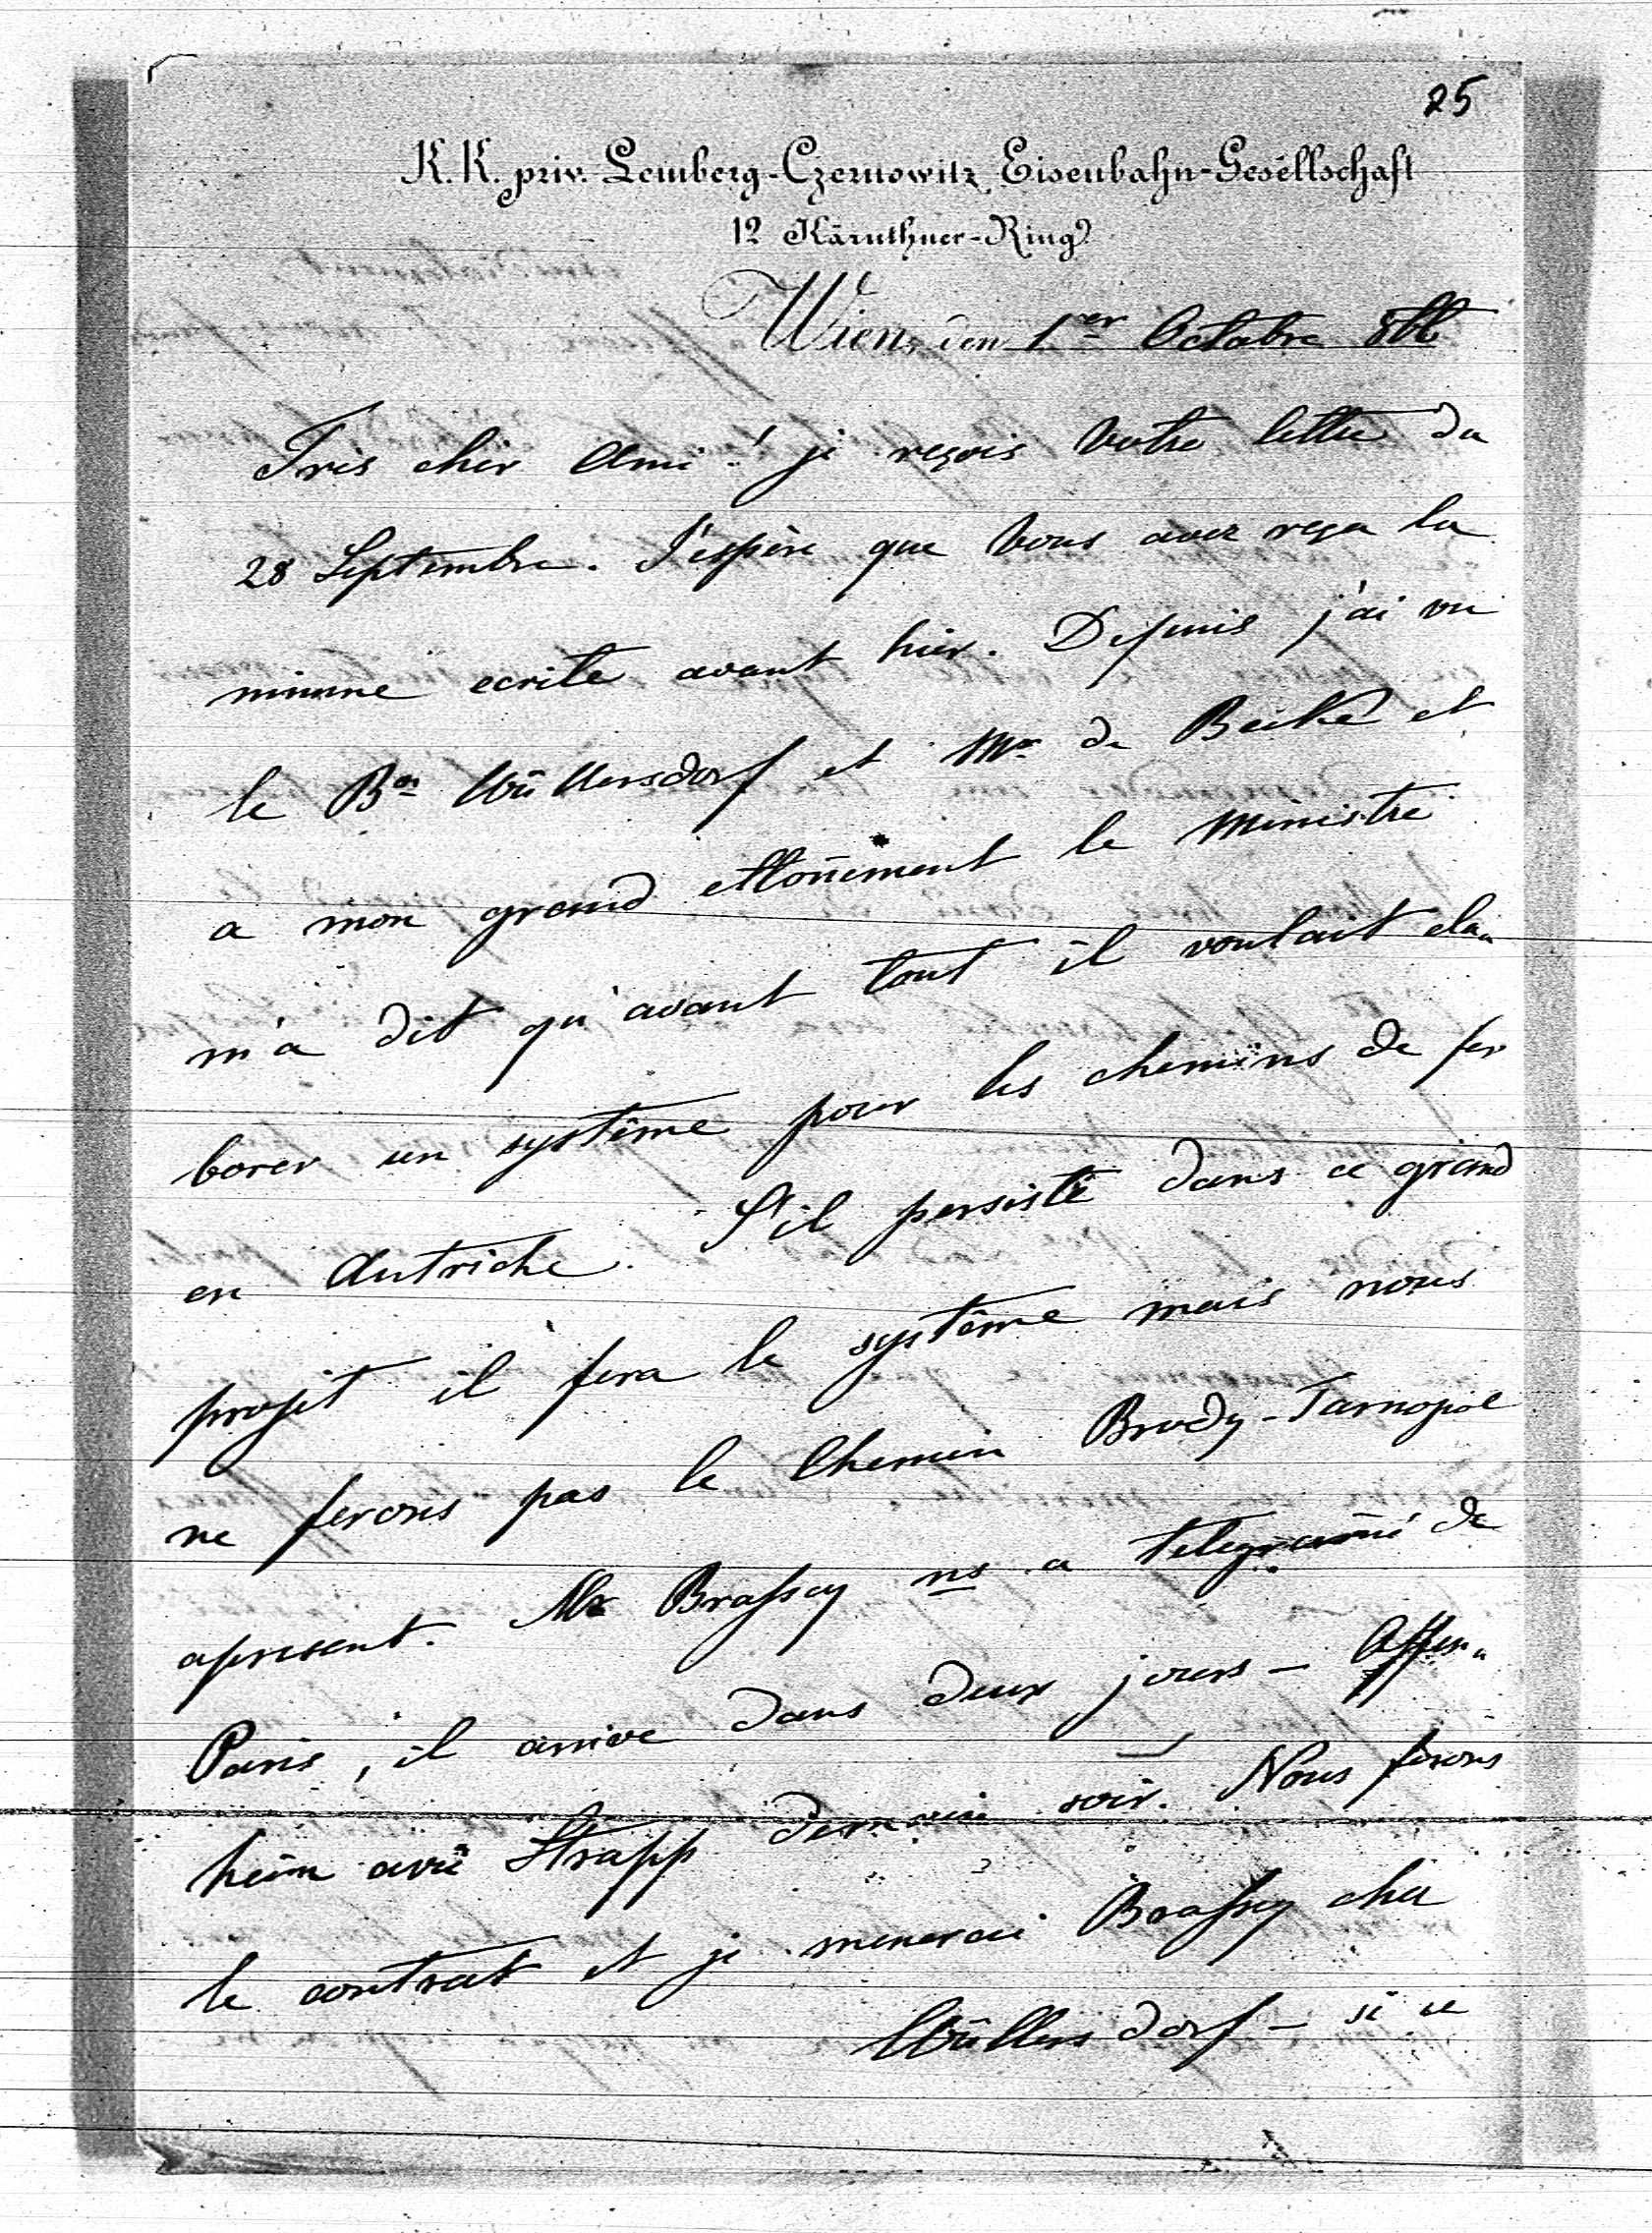 25
K. K. priv. Lemberg-Czernowitz Eisenbahn-Gesellschaft
12 Kärnthner-Ring
Wien, den 1er Octobre 866
Très cher Ami! je reçois Votre lettre du
28 Septembre. J'espère que Vous avez reçu la
mienne ecrite avant hier. Depuis j'ai vu
le Bon Wüllersdorf et Mr de Becke et
a mon grand ettoñement le Ministre
m'a dit qu'avant tout il voulait ela„
borer un système pour les chemins de fer
en Autriche. S'il persiste dans ce grand
projet il fera le système mais nous
ne ferons pas le Chemin Brody-Tarnopol
apresent. Mr Brassey ns a telegrañé de
Paris, il arrive dans deux jours – Offen„
heim avec Strapp demain soir. Nous ferons
le contrat et je menerai Brassey chez
Wüllersdorf – si ce